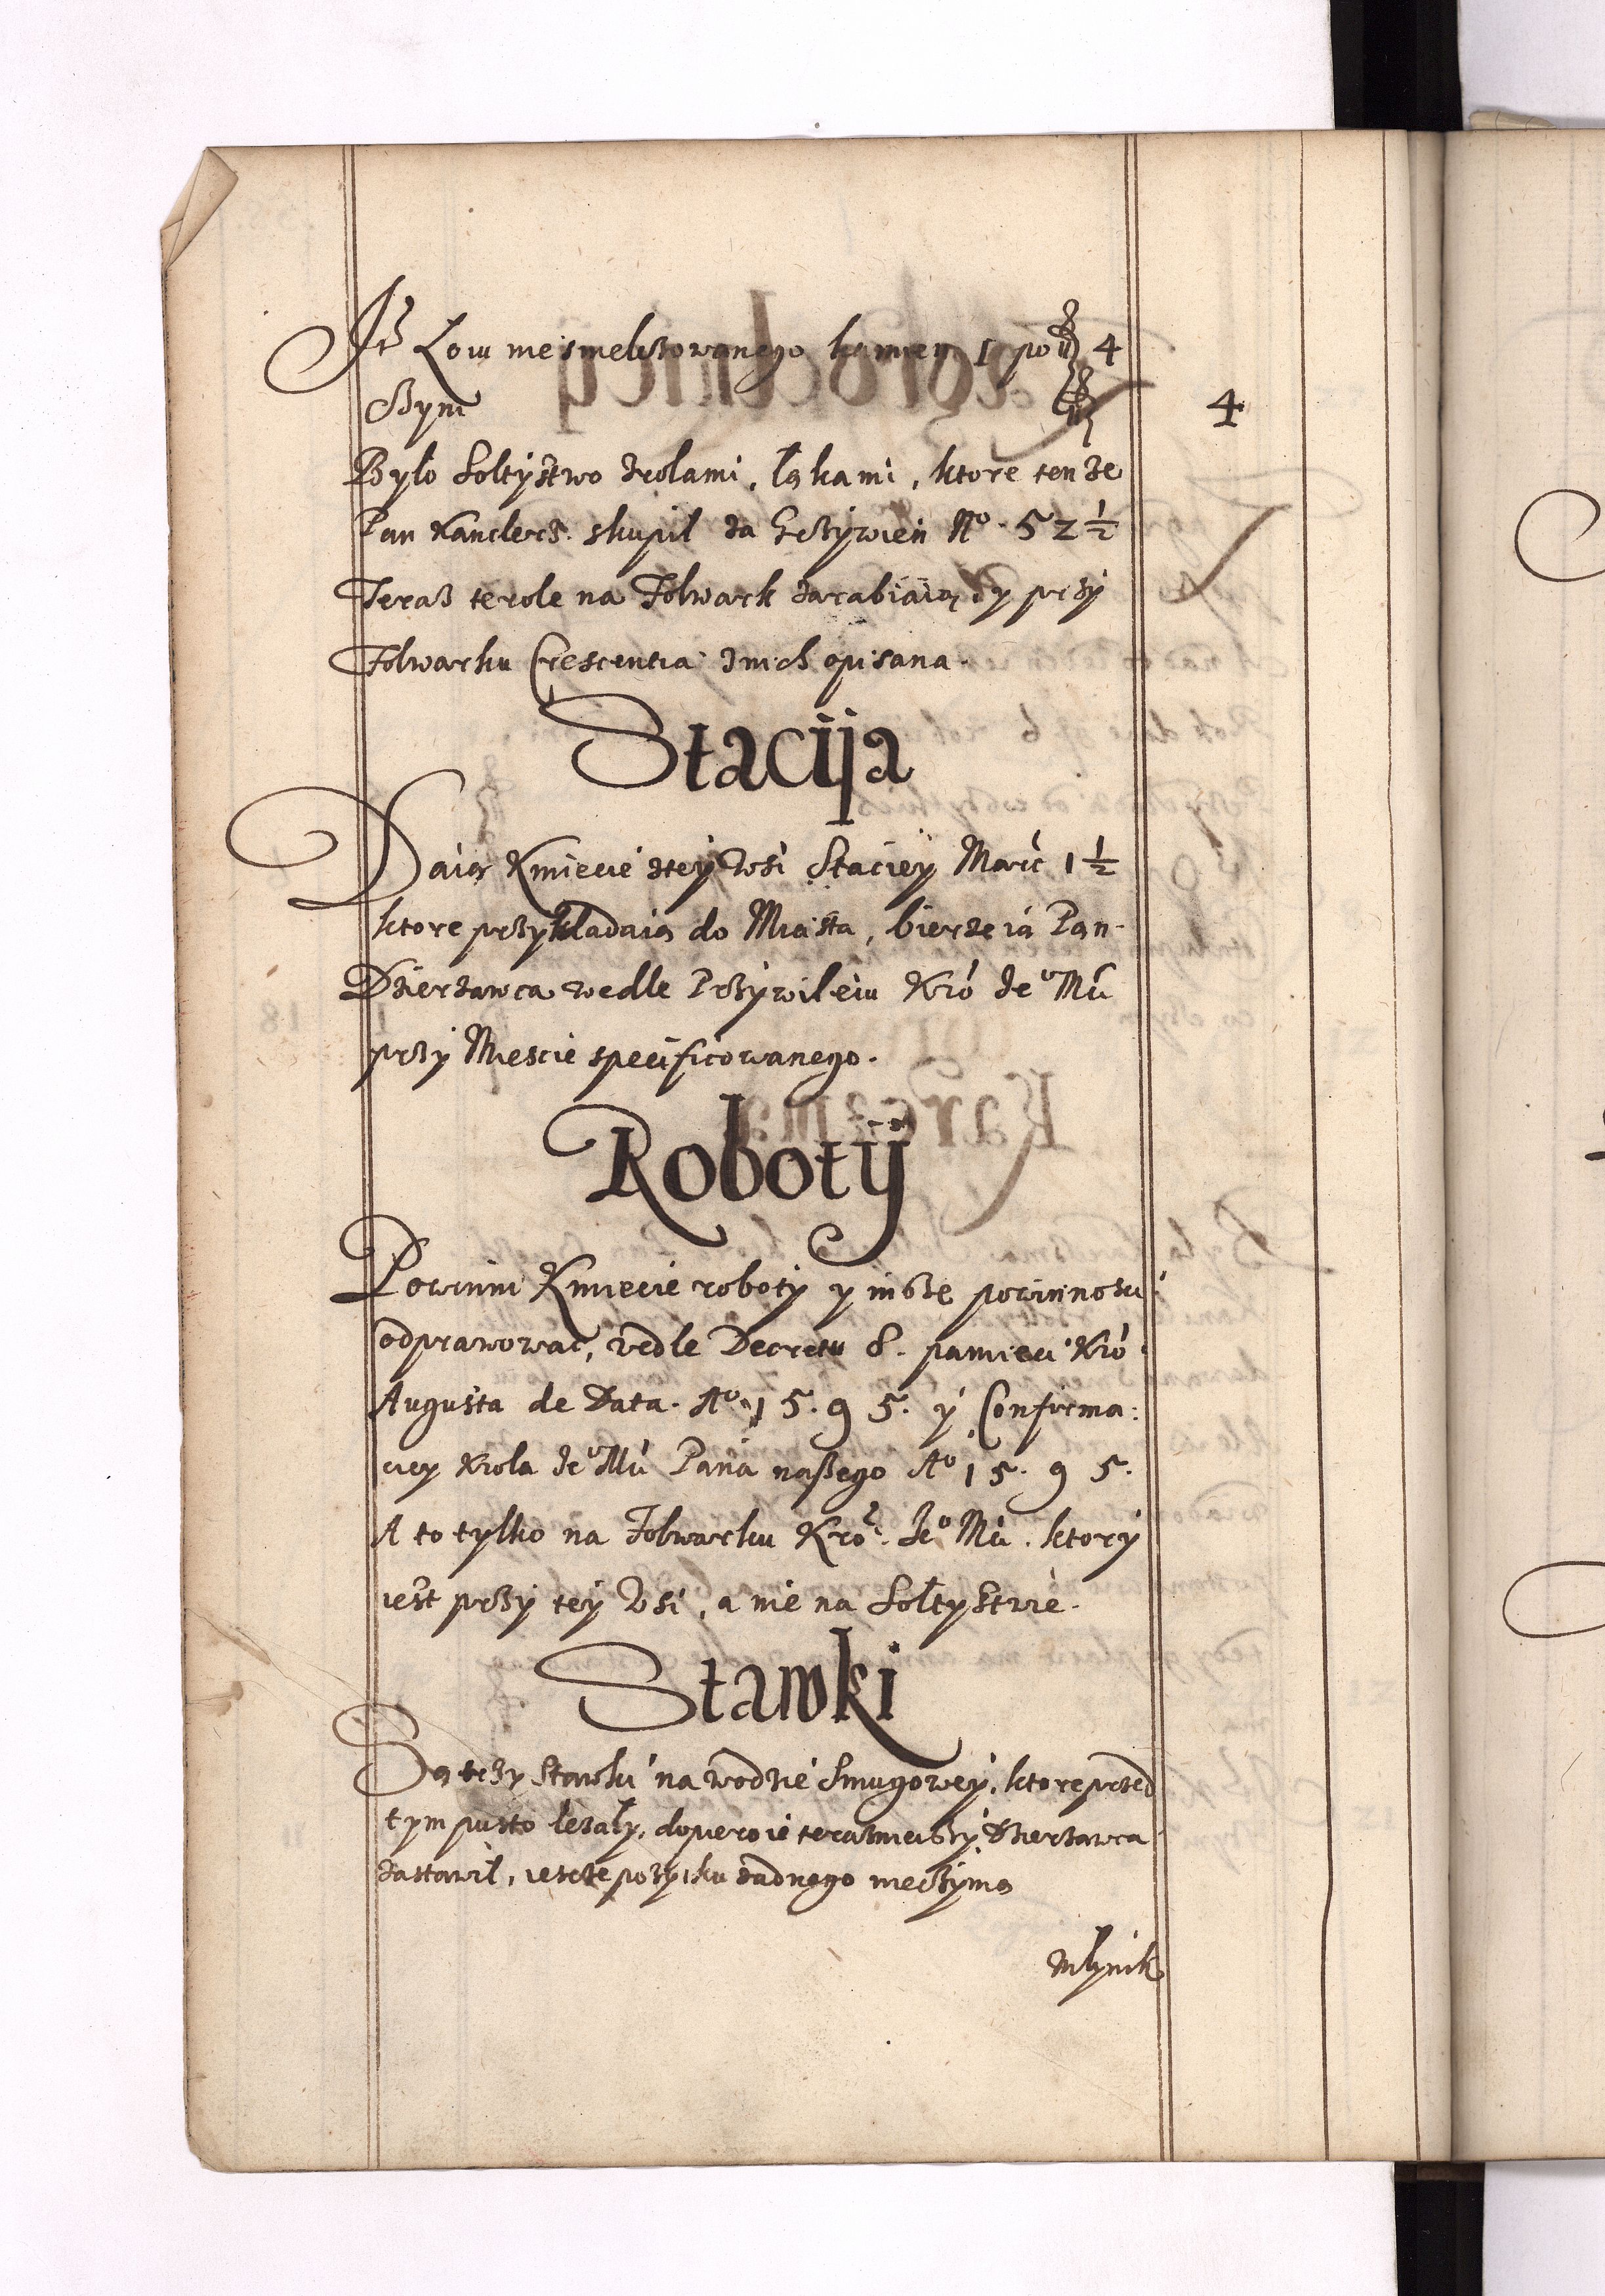 It Łoiu nieismelczowanego kamien 1 po 4
czym 4
Było Soltÿstwo zrolami, łąkami, ktore tenze
Pan Kanclerz skupil za Grzÿwien No. 52 ½
Teraz te role na Folwark zarabiaią, y przÿ
Folwarku Crescentia znich opisana.
Stacija
Daią Kmiecie zteÿ Wsi Stacieÿ Marc 1 ½
ktore przykladaią do Miasta, bierze ią Pan
Dzierzawca wedle Przÿwileiu Kro Jeo Mci
przÿ Miescie specificowanego.
Robotÿ
Powinni Kmiecie robotÿ y insze powinnosci
odprawowac, vedle Decretu S. pamieci Kro
Augusta de Data. Ao. 1 5. 9 5. ÿ Confirma:
ciey Krola Jeo Mci Pana naszego Ao 1 5. 9 5.
A to tylko na Folwarku Kro. Jeo Mci. ktorÿ
iest przÿ teÿ Wsi, a nie na Soltystwie.
Stawki
Są trzy Stawki na wodzie Smugoweÿ, ktore przed
tym pusto lezały, dopero ie teraznieiszÿ Dzierzawca
zastawil, iescze pozytku zadnego nieczÿnią
Młynik